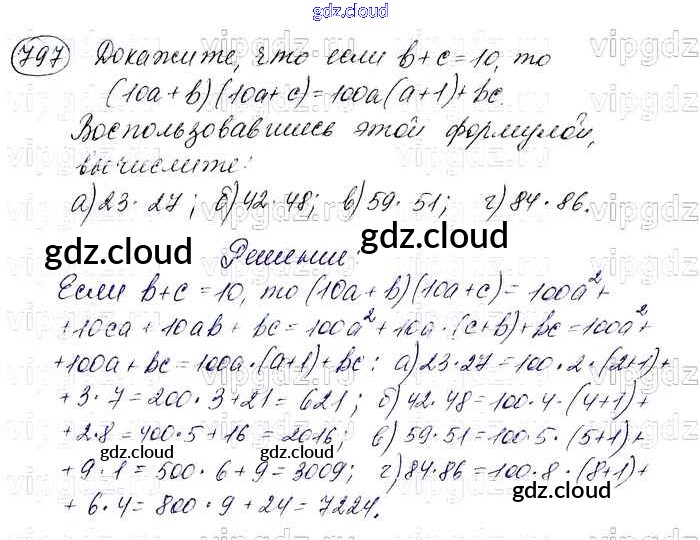 gdz.cloud
797 Докажите, что если b+c=10, то
(10a+b)(10a+c)=100a(a+1)+bc.
Воспользовавшись этой формулой,
вычислите:
а) 23·27; б) 42·48; в) 59·51; г) 84·86.
gdz.cloud gdz.cloud
Решение:
Если b+c=10, то (10a+b)(10a+c)=100a²+
+10ca+10ab+bc=100a²+10a·(c+b)+bc=100a²+
+100a+bc=100a·(a+1)+bc: а) 23·27=100·2·(2+1)+
+3·7=200·3+21=621; б) 42·48=100·4·(4+1)+
+2·8=400·5+16=2016; в) 59·51=100·5·(5+1)+
gdz.cloud gdz.cloud
+9·1=500·6+9=3009; г) 84·86=100·8·(8+1)+
+6·4=800·9+24=7224.